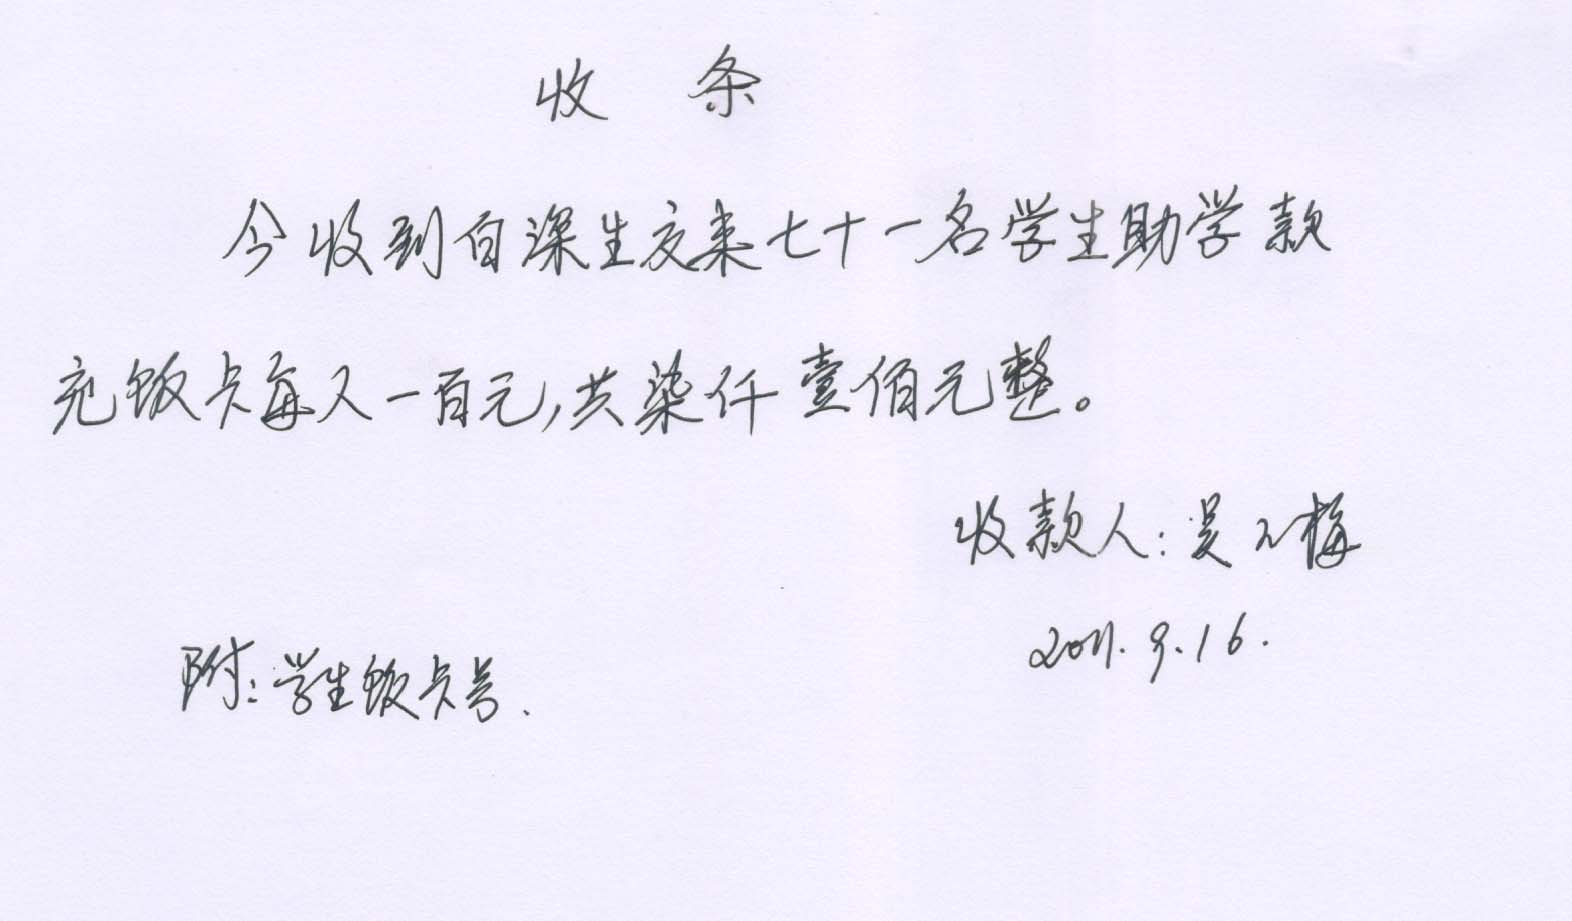 收 条
今收到白深生交来七十一名学生助学款
充饭卡每人一百元,共柒仟壹佰元整。
收款人:吴 梅
2011.9.16.
附:学生饭卡号.